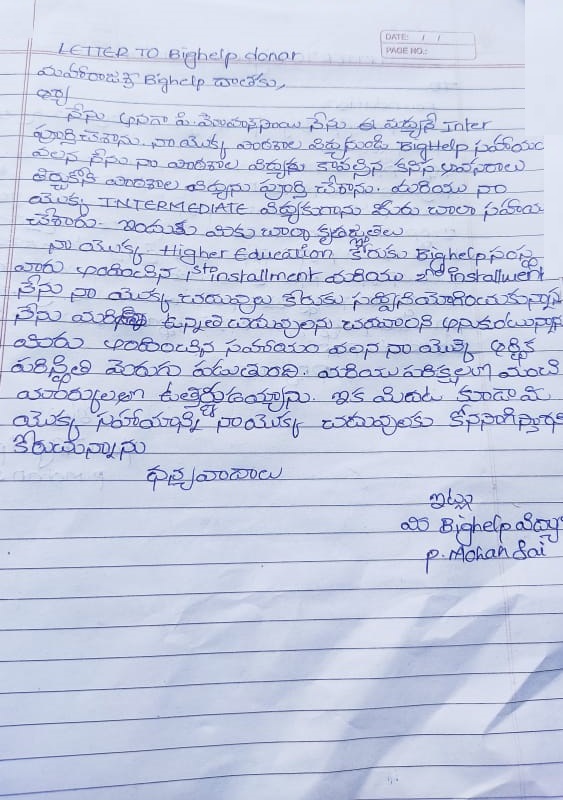 DATE: / /
PAGE NO.:
LETTER TO Bighelp donar
మహారాజశ్రీ Bighelp దాతకు,
ఆర్య
నేను అనగా పి. మోహన్ సాయి నేను ఈ మధ్యనే Inter
పూర్తి చేశాను. నా యొక్క పాఠశాల విద్య నుండి BigHelp సహాయం
వలన నేను నా పాఠశాల విద్యకు కావలసిన కనీస అవసరాలు
తీర్చుకొని పాఠశాల విద్యను పూర్తి చేశాను. మరియు నా
యొక్క INTERMEDIATE విద్యకు మీరు చాలా సహాయం
చేశారు. ఇందుకు మీకు చాలా కృతజ్ఞతలు
నా యొక్క Higher Education కొరకు Bighelp సంస్థ
వారు అందించిన 1st installment మరియు 2nd installment
నేను నా యొక్క చదువులు కొరకు సద్వినియోగించుకున్నాను
నేను మరి ఉన్నత చదువులను చదవాలని అనుకుంటున్నాను
మీరు అందించిన సహాయం వలన నా యొక్క ఆర్థిక
పరిస్థితి మెరుగు పడుతుంది. మరియు పరీక్షలలో మంచి
మార్కులతో ఉత్తీర్ణుడయ్యాను. ఇక మీదట కూడా మీ
యొక్క సహాయాన్ని నా యొక్క చదువులకు కొనసాగిస్తారని
కోరుచున్నాను
ధన్యవాదాలు
ఇట్లు
మీ Bighelp విద్యా
P. Mohan Sai